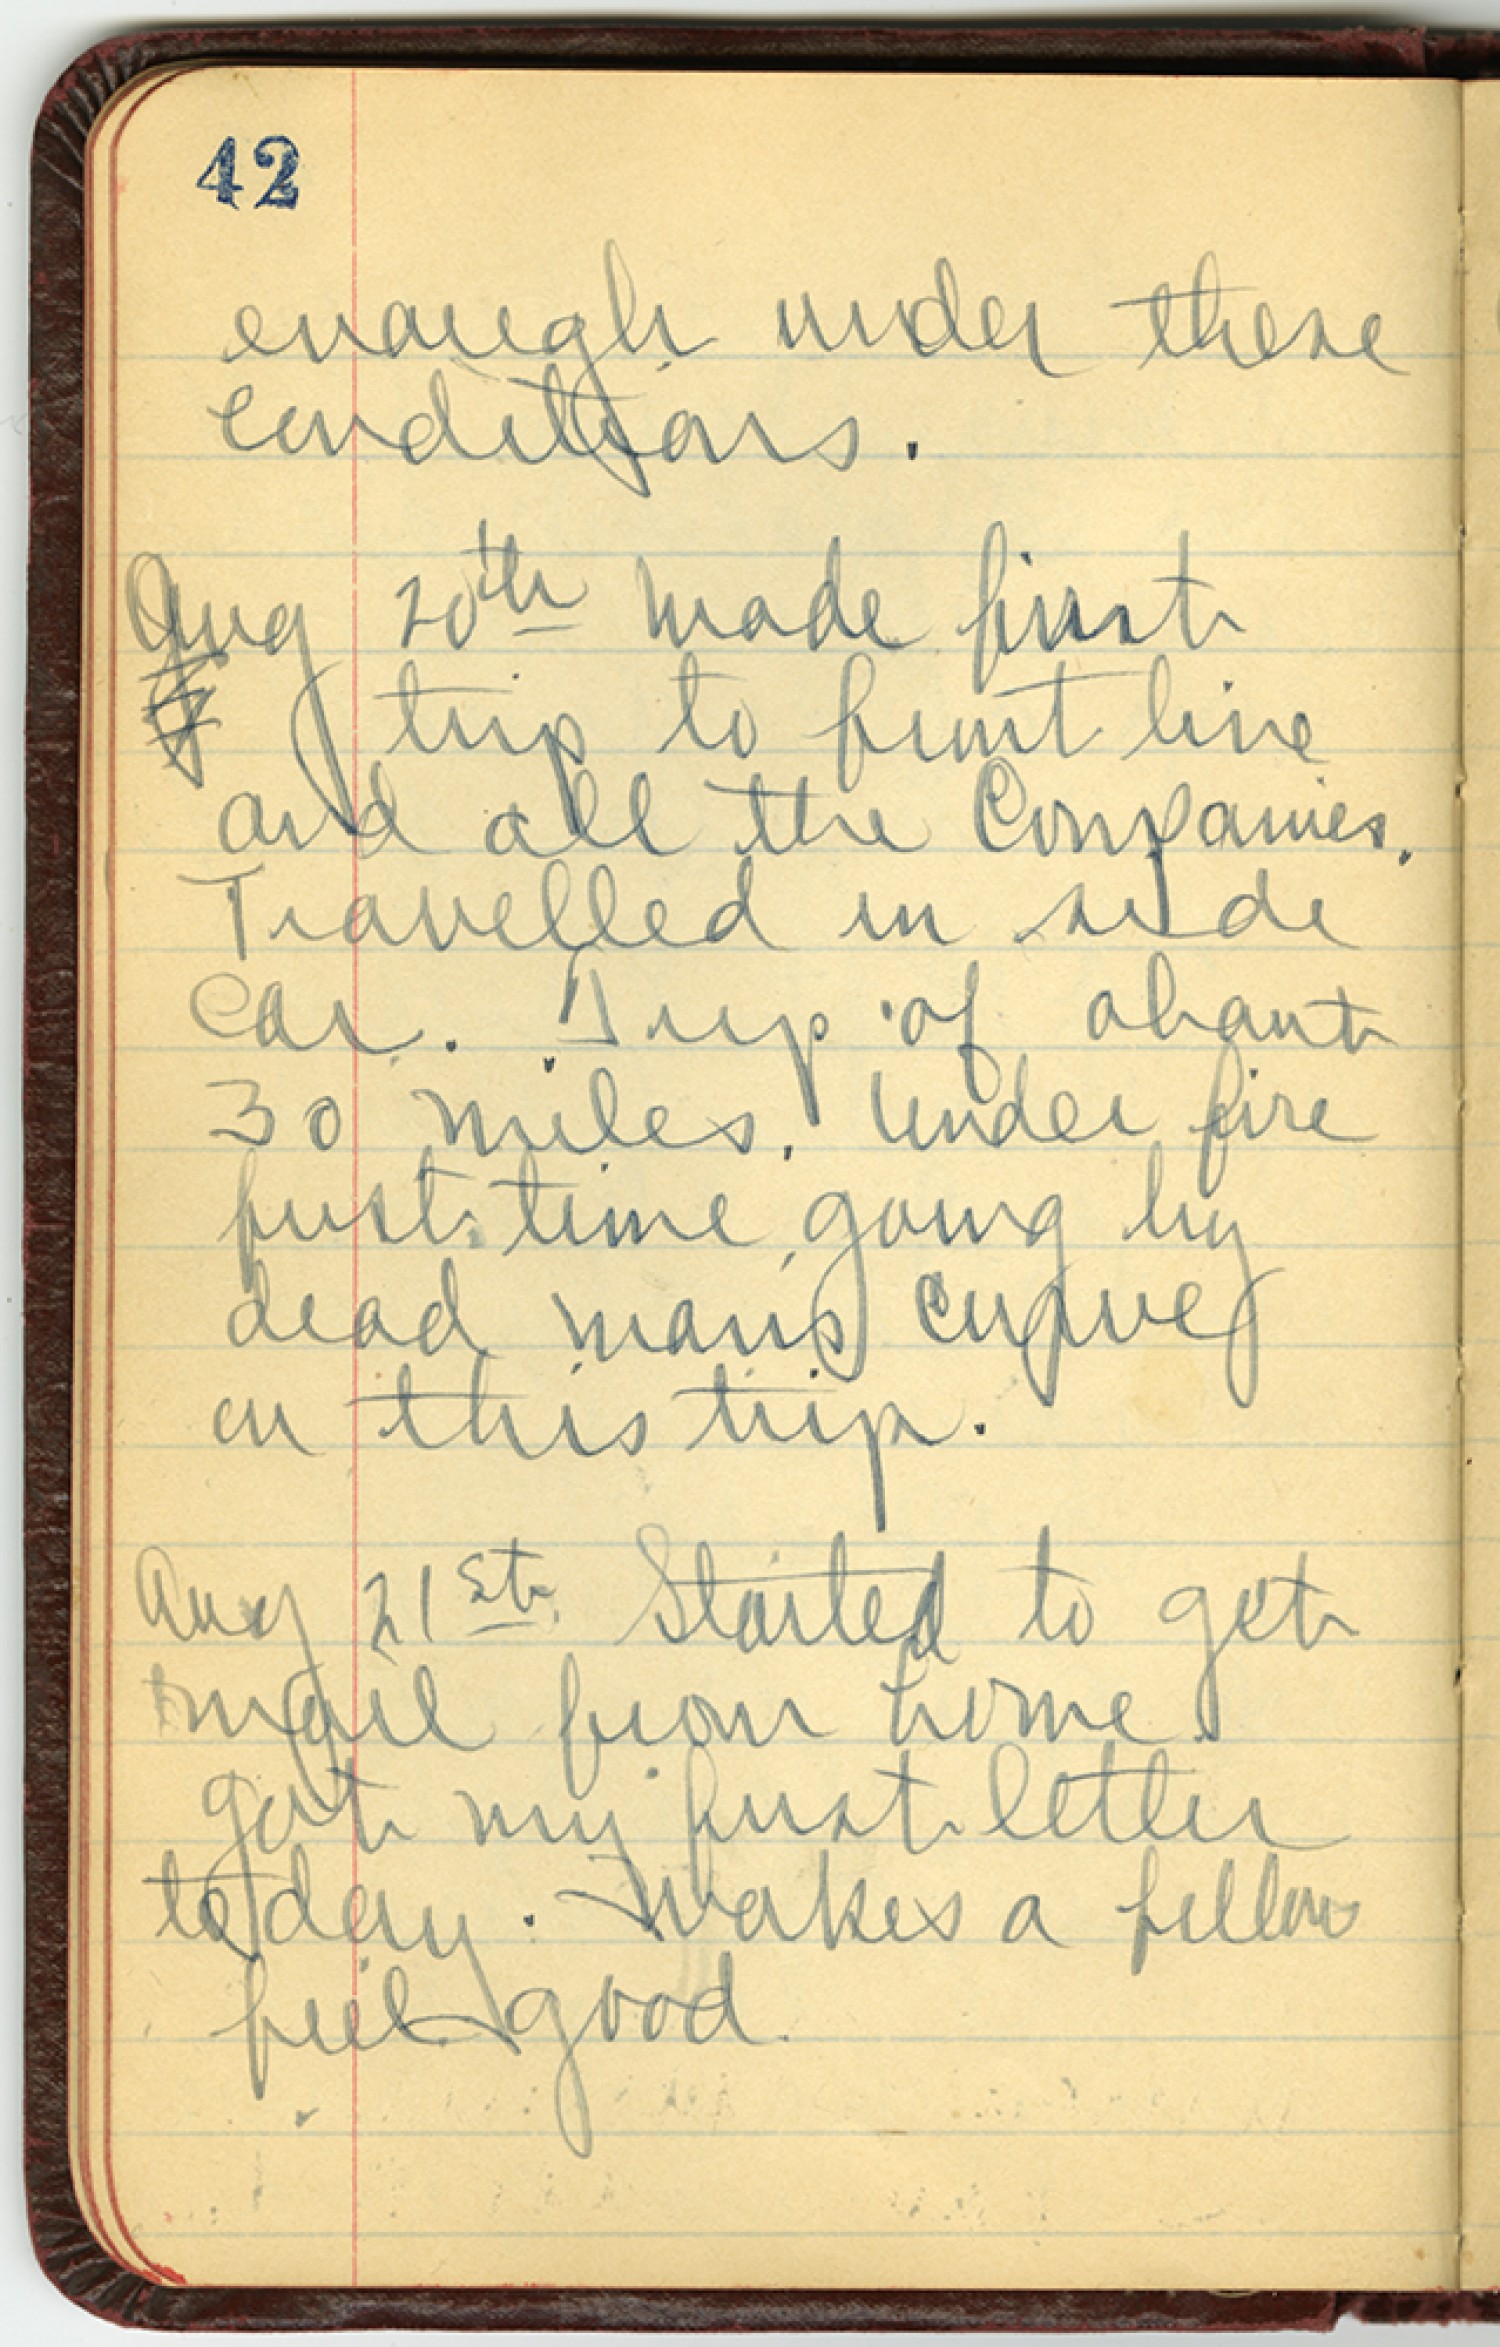 42
enough under these
conditions.
Aug 20th made first
trip to front line
and all the Companies.
Travelled in side
car. Trip of about
30 miles. Under fire
first time going by
dead man's curve
on this trip.
Aug 21st Started to get
mail from home.
got my first letter
today. Makes a fellow
feel good.